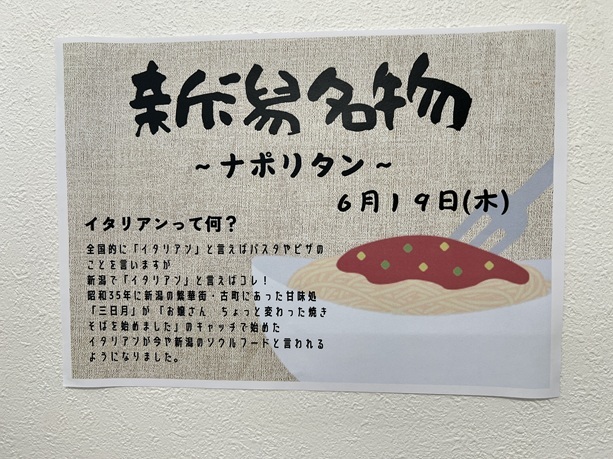 新潟名物
~ナポリタン~
6月19日(木)
イタリアンって何？
全国的に「イタリアン」と言えばパスタやピザの
ことを言いますが
新潟で「イタリアン」と言えばコレ！
昭和35年に新潟の繁華街・古町にあった甘味処
「三日月」が「お嬢さん　ちょっと変わった焼き
そばを始めました」のキャッチで始めた
イタリアンが今や新潟のソウルフードと言われる
ようになりました。